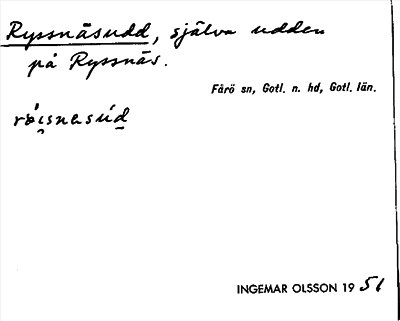 Ryssnäsudd, själva udden
på Ryssnäs.
Fårö sn, Gotl. n. hd, Gotl. län.
INGEMAR OLSSON 19 51